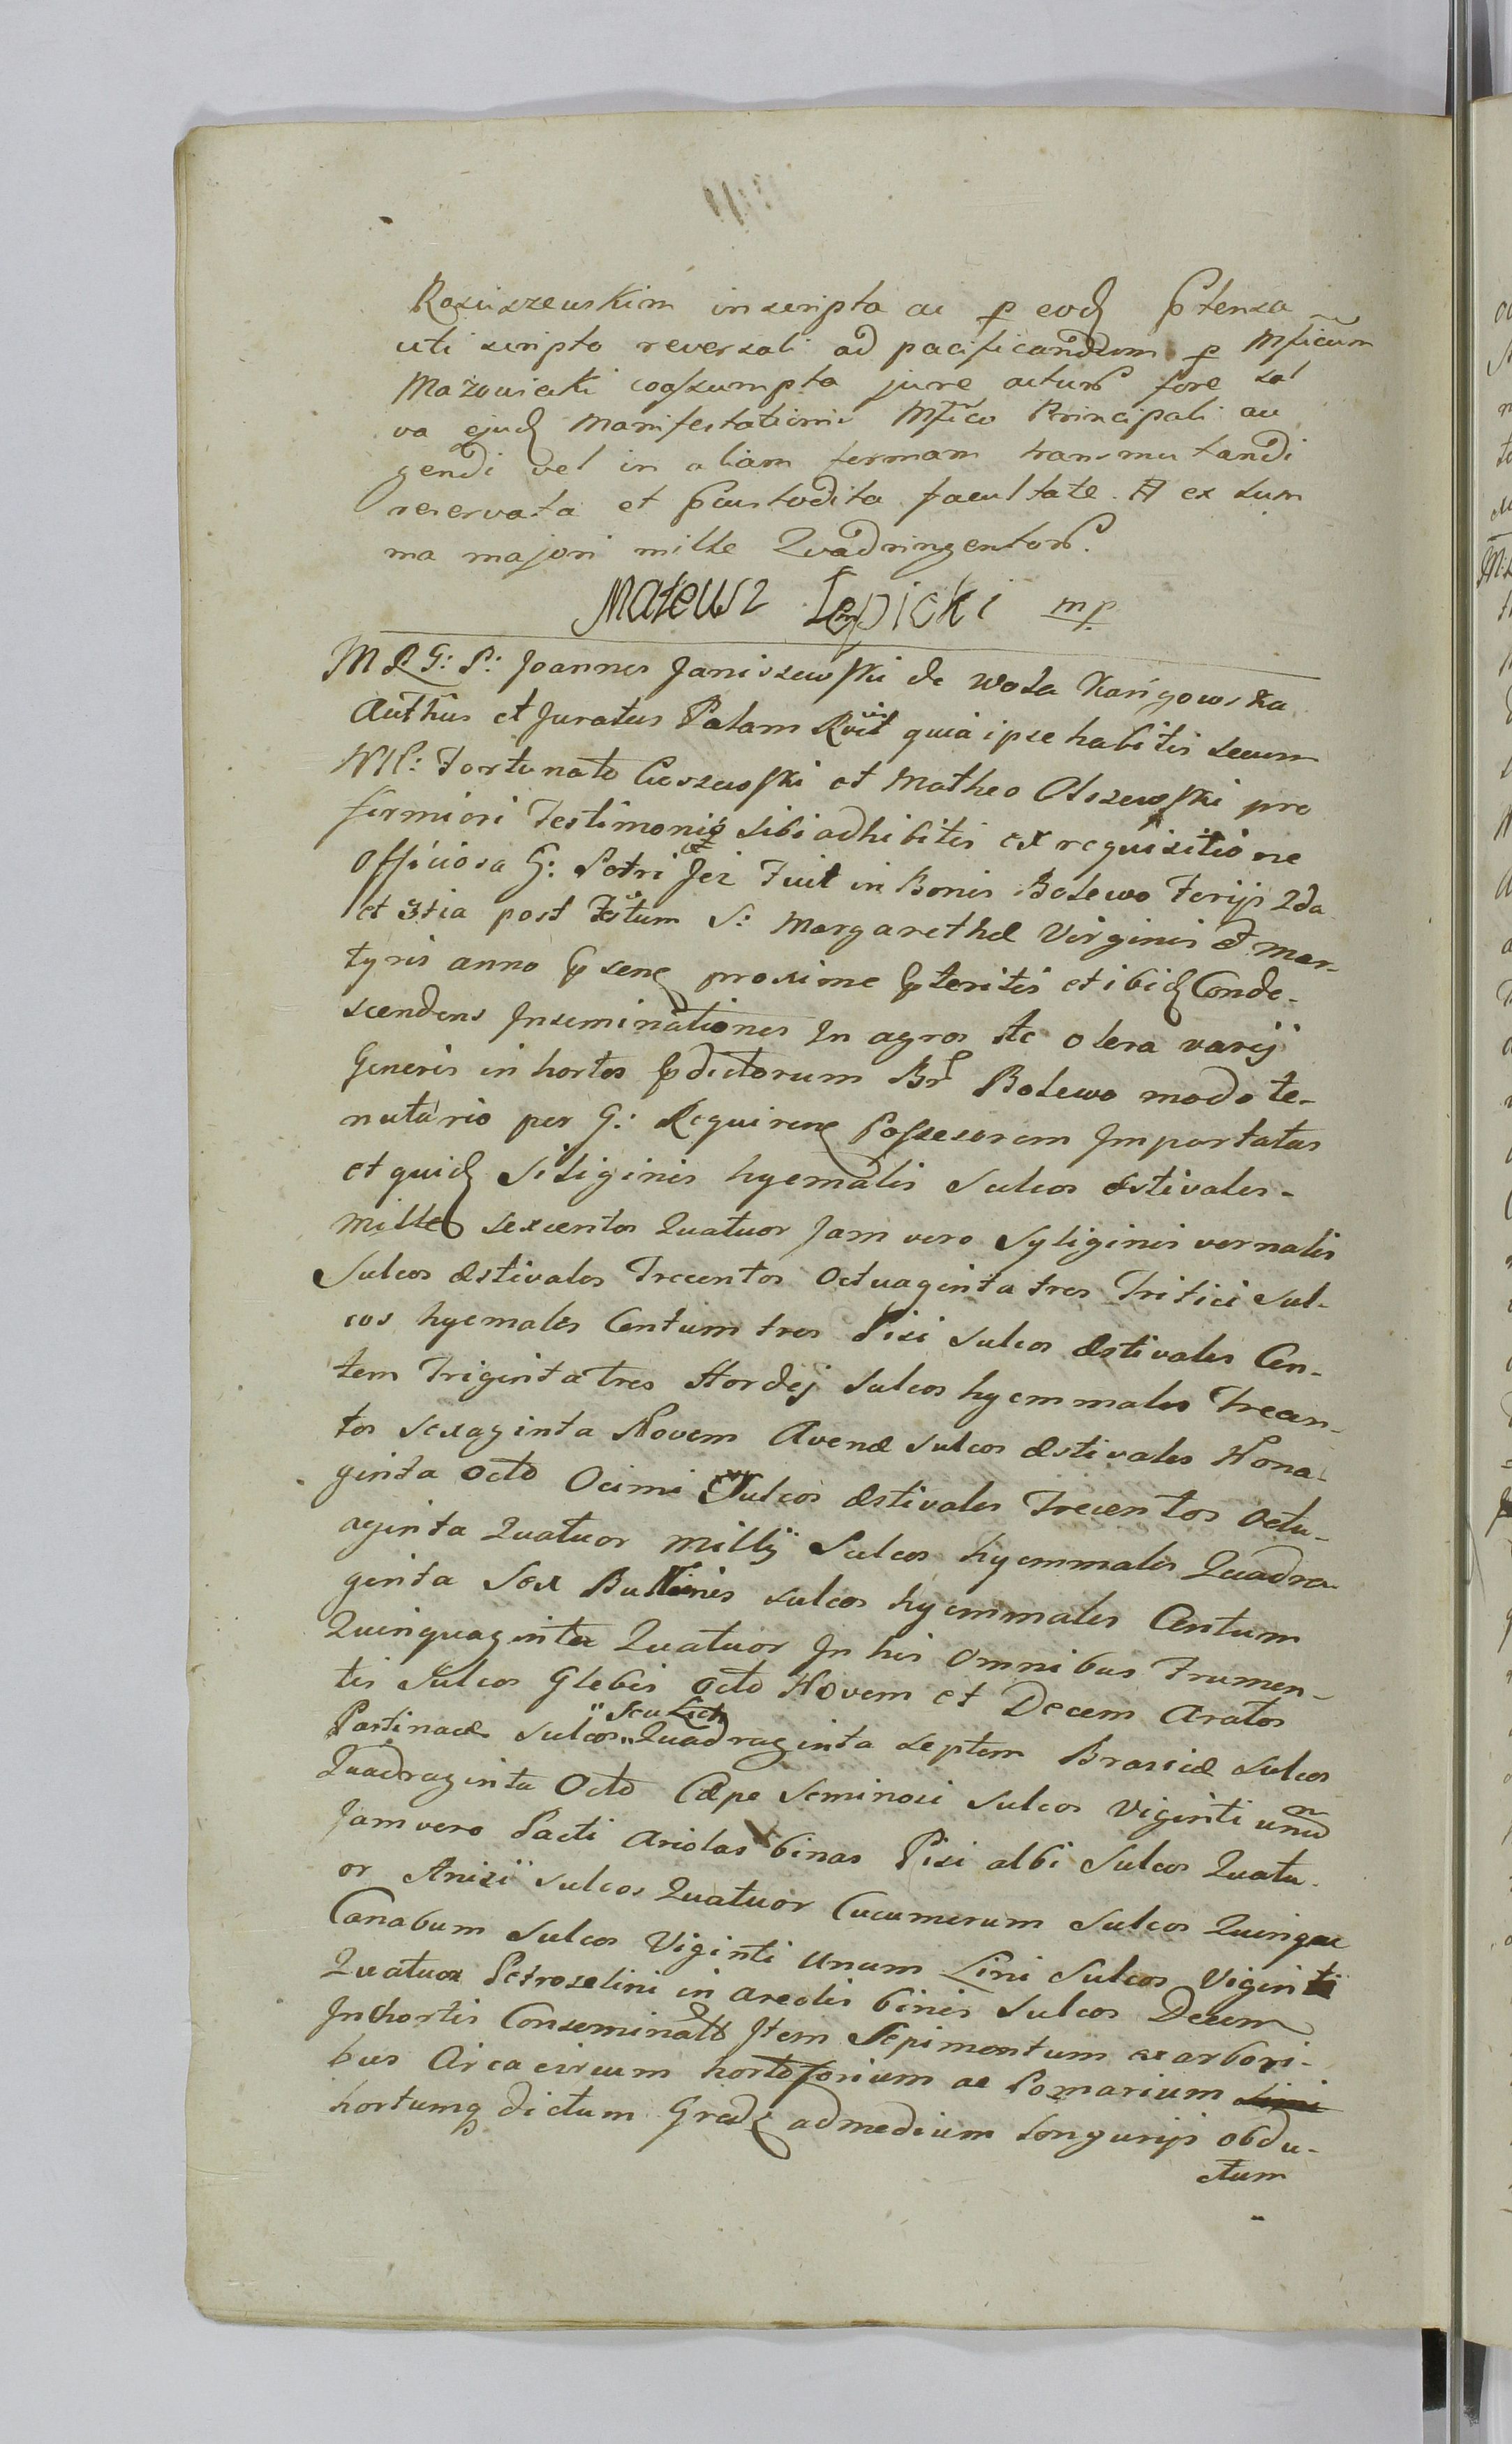 Rościszewskim inscripta ac p eod ptensa
uti scripto reversali ad pacificandum p Mficum
Mazowiecki coassumpta jure acturus fore sal
va ejusd Manifestationis Mfico Principali au
gendi vel in aliam formam transmutandi
reservata et pcustodita facultate. # ex sum
ma majori mille Quadringentorus.
Mateusz Lepicki mp
M R G: S: Joannes Janiszewski de Wola Kanigowska
Authus et Juratus Palam Rvit quia ipse habitis secum
NN: Fortunato Ciszewski et Matheo Olszewski pro
firmiori Testimonio sibi adhibitis ex requisitione
Officiosa G: Petri Jez Fuit in Bonis Bolewo Ferijs 2da
et 3tia post Fstum S: Margarethæ Virginis et Mar-
tyris anno psene proxime pteritis et ibid Conde-
scendens Inseminationes In agros ac olera varij
Generis in hortos pdictorum Br Bolewo modo te-
nutario per G: Requirene Possesorem Importatas
et quid Siliginis hyemalis Sulcos æstivales-
mille sexcentos Quatuor Jam vero Syliginis vernalis
Sulcos æstivales Trecentos Octuaginta tres Tritici sul-
cos hyemales Centum tres Pisi sulcos æstivales Cen-
tem Triginta Tres Hordej Sulcos hyemmales Trecen-
tos sexaginta Novem Avenæ sulcos æstivales Nona-
ginta Octo Ocimi Sulcos æstivales Trecentos Octu-
aginta Quatuor Millij Sulcos hyemmales Quadra-
ginta Sex Bullinis sulcos hyemmales Centum
Quinquaginta Quatuor In his Omnibus Frumen-
tis Sulcos Glebis Octo Novem et Decem Aratos
Pastinacæ Sulcos Quadraginta septem Brassicæ sulcos
Quadraginta Octo Cæpe Seminosi sulcos Viginti unum
Jam vero Sacti Ariolas binas Pisi albi Sulcos Quatu-
or Anisii sulcos Quatuor Cucumerum Sulcos Quinque
Canabum sulcos Viginti Unam Lini Sulcos Viginti
Quatuor Petroselini in areolis binis Sulcos Decem
In hortis Conseminatt Item Sepimentum ex arbori-
bus Circa circum hortoforium ac Pomarium
hortumq dictum Grad ad medium Longurijs obdu-
ctum